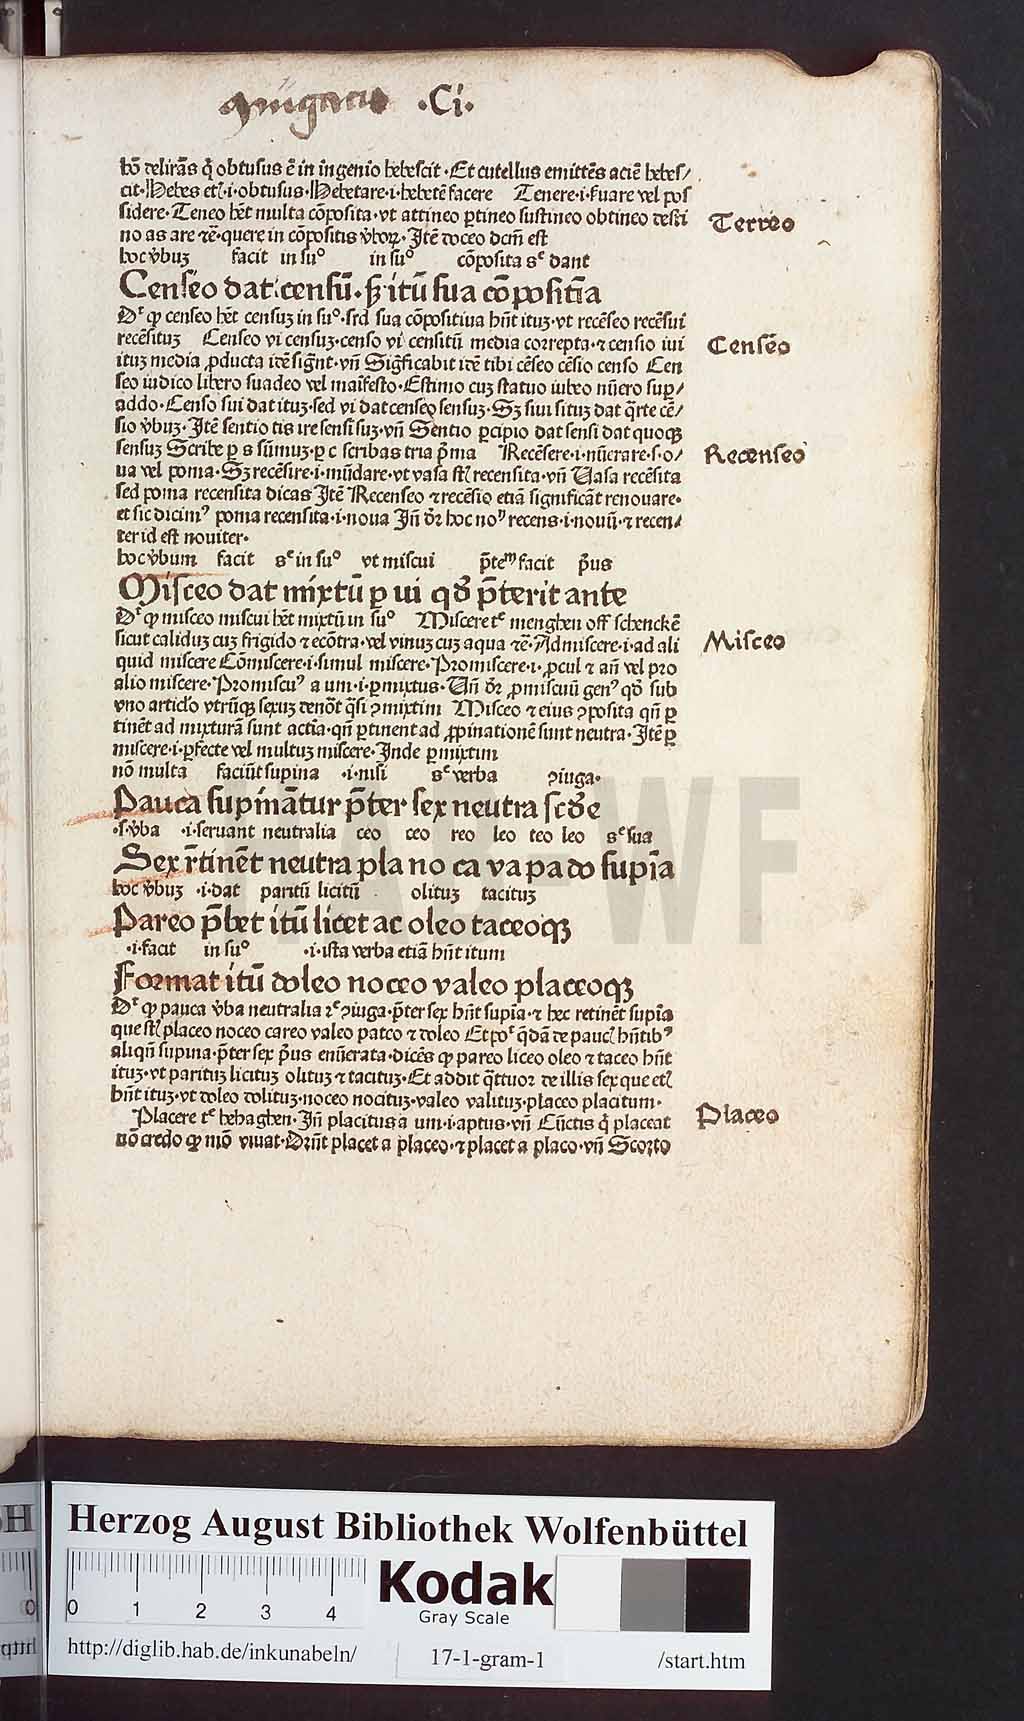 .Ci.
bõ delirãs q̃ obtusus ẽ in ingenio hebescit ·Et cutellus emittẽs aciẽ hebes/
cit·Hebes etꝭ·i·obtusus·Hebetare·i·hebetẽ facere Tenere·i·ẜuare vel pos
sidere·Teneo hẽt multa cõposita·vt attineo ꝑtineo sustineo obtineo desti
no as are ⁊ẽ·quere in cõpositis v̾boꝝ·Itẽ doceo dcm̃ est
Terreo
hoc v̾buꝫ facit in suº in suº cõposita sᶜ dant
Censeo dat censũ·sꝫ itũ sua cõpositĩa
Dʳ ꝙ censeo hẽt censuꝫ in suº·sꝫd sua cõpositiua hñt ituꝫ·vt recẽseo recẽsui
recẽsituꝫ Censeo vi censuꝫ·censo vi censitũ media correpta·⁊ censio iui
Censeo
ituꝫ media ꝓducta idẽ signt̃·vñ Significabit idẽ tibi cẽseo cẽsio censo Cen
seo iudico libero suadeo vel maĩfesto·Estimo cuꝫ statuo iubeo nũero suꝑ/
addo·Censo sui dat ituꝫ·sed vi dat censeo sensuꝫ·Sꝫ siui situꝫ dat q̃rte cẽ/
sio v̾buꝫ·Itẽ sentio tis ire sensi suꝫ·vñ Sentio ꝑcipio dat sensi dat quoqꝫ
sensuꝫ Scribe ꝑ s sũmuꝫ·ꝑ c scribas tria p̃ma Recẽsere·i·nũerare·s·o/
Recenseo
ua vel poma·Sꝫ recẽsire·i·mũdare·vt vasa stꝭ recensita·vñ Uasa recẽsita
sed poma recensita dicas Itẽ Recenseo ⁊ recẽsio etiã significãt renouare·
et sic dicimꝰ poma recensita·i·noua Iñ dr̃ hoc noᵐ recens·i·nouũ·⁊ recen/
ter id est nouiter·
hoc v̾bum facit sᶜ in suº vt miscui p̃teᵐ facit p̃us
Misceo dat mixtũ ꝑ ui qd̾ p̃terit ante
Dʳ ꝙ misceo miscui hẽt mixtũ in suº Miscere tᶜ menghen off schenckẽ
sicut caliduꝫ cuꝫ frigido ⁊ ecõtra·vel vinuꝫ cuꝫ aqua ⁊ẽ·Admiscere·i·ad ali
Misceo
quid miscere Cõmiscere·i·simul miscere·Promiscere·i·ꝓcul ⁊ añ vel pro
alio miscere·Promiscuꝰ a um·i·ꝑmixtus·Uñ dr̃ ꝓmiscuũ genꝰ qd̾ sub
vno articlo vtrũqꝫ sexuꝫ denot̃ q̃si ꝯmixtim Misceo ⁊ eius ꝯposita qñ ꝑ
tinẽt ad mixturã sunt actĩa·qñ ꝑtinent ad ꝓpinationẽ sunt neutra·Itẽ ꝑ
miscere·i·ꝑfecte vel multuꝫ miscere·Inde ꝑmixtim
nõ multa faciũt supina ·i·nisi sᶜ verba ꝯiuga·
Pauca supinãtur p̃ter sex neutra scd̾e
·s·v̾ba ·i·seruant neutralia ceo ceo reo leo teo leo sᶜ sua
Sex r̃tinẽt neutra pla no ca va pa do supĩa
hoc v̾buꝫ ·i·dat paritũ licitũ olituꝫ tacituꝫ
Pareo p̃bet itũ licet ac oleo taceoqꝫ
·i·facit in suº ·i·ista verba etiã hñt itum
Format itũ doleo noceo valeo placeoqꝫ
Dʳ ꝙ pauca v̾ba neutralia ꝯiuga·p̃ter sex hñt supĩa·⁊ hec retinẽt supĩa
que stꝭ placeo noceo careo valeo pateo ⁊ doleo
aliqñ supina·p̃ter sex p̃us enũerata·dicẽs ꝙ pareo liceo oleo ⁊ taceo hñt
ituꝫ·vt parituꝫ licituꝫ olituꝫ ⁊ tacituꝫ·Et addit q̃ttuor de illis sex que etꝭ
hñt ituꝫ·vt doleo dolituꝫ·noceo nocituꝫ·valeo valituꝫ·placeo placitum·
Placere tᶜ behaghen·Iñ placitus a um·i·aptus·vñ Cũctis q̃ placeat
Placeo
nõ credo ꝙ mõ viuat·Drñt placet a placeo·⁊ placet a placo·vñ Scorto
HAB-WF
Herzog August Bibliothek Wolfenbüttel
0 1 2 3 4
Kodak
Gray Scale
http://diglib.hab.de/inkunabeln/
17-1-gram-1
/start.htm